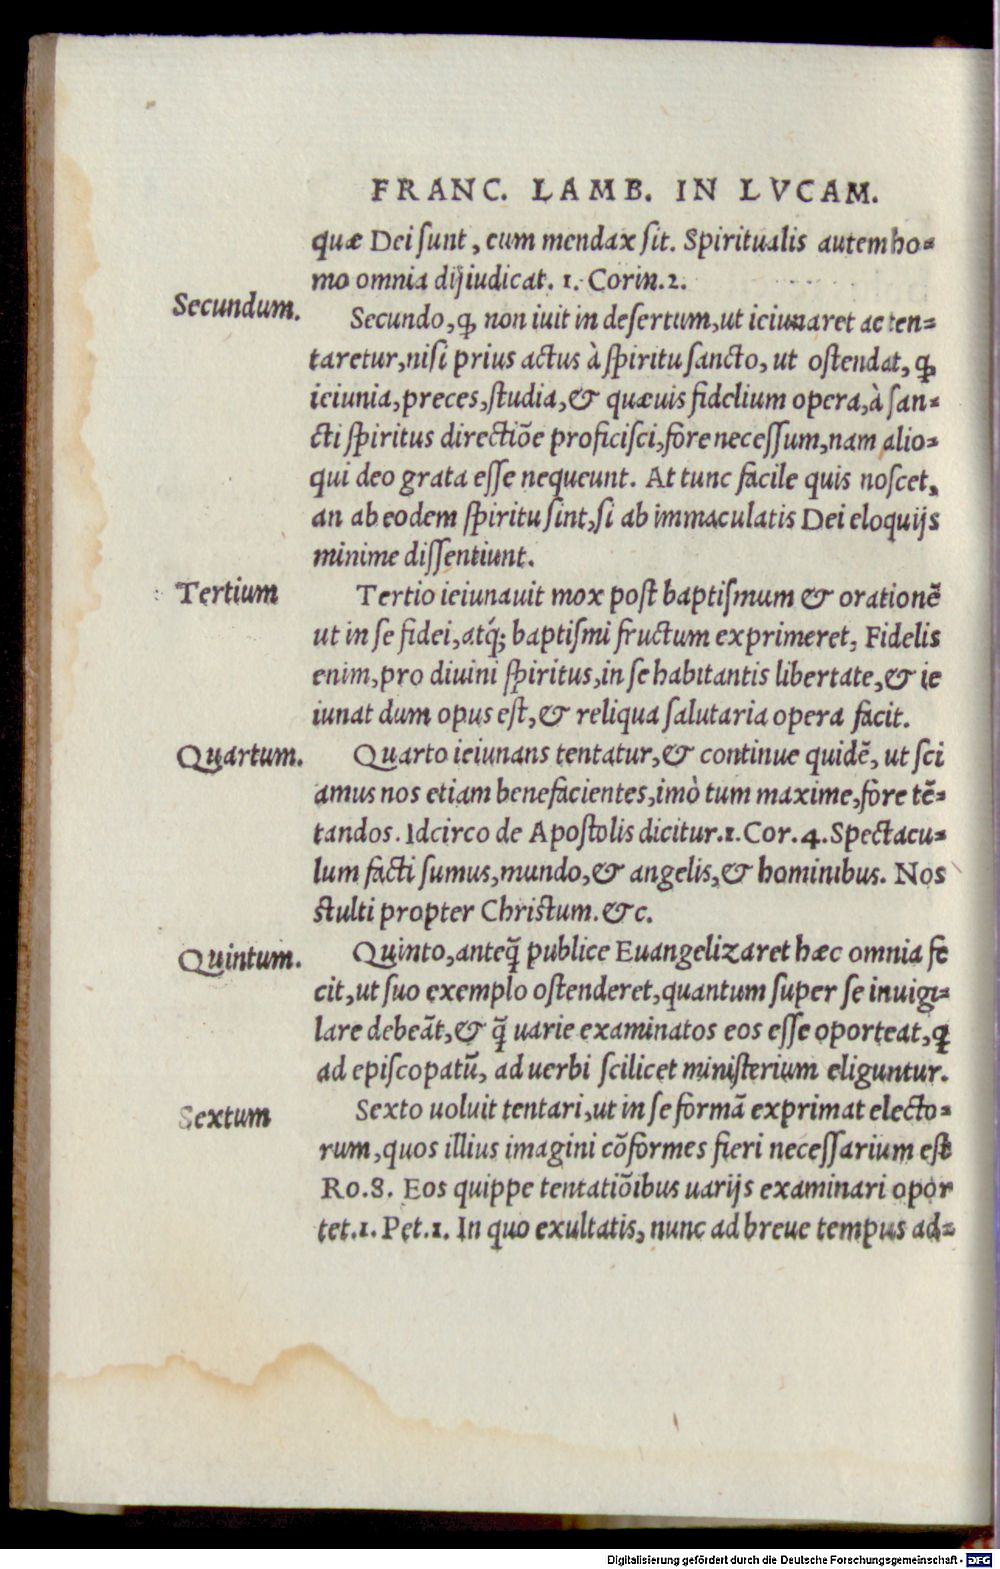 FRANC. LAMB. IN LVCAM.
quæ Dei sunt, cum mendax sit. Spiritualis autem ho-
mo omnia dijiudicat. 1. Corin.2.
Secundum.
Secundo, ꝙ non iuit in desertum, ut ieiunaret ac ten-
taretur, nisi prius actus à spiritu sancto, ut ostendat, ꝙ
ieiunia, preces, studia, & quæuis fidelium opera, à san-
cti spiritus directiõe proficisci, fore necessum, nam alio-
qui deo grata esse nequeunt. At tunc facile quis noscet,
an ab eodem spiritu sint, si ab immaculatis Dei eloquijs
minime dissentiunt.
Tertium
Tertio ieiunauit mox post baptismum & orationẽ
ut in se fidei, atq́; baptismi fructum exprimeret, Fidelis
enim, pro diuini spiritus, in se habitantis libertate, & ie
iunat dum opus est, & reliqua salutaria opera facit.
Quartum.
Quarto ieiunans tentatur, & continue quidẽ, ut sci
amus nos etiam benefacientes, imò tum maxime, fore tẽ-
tandos. Idcirco de Apostolis dicitur.1.Cor.4. Spectacu-
lum facti sumus, mundo, & angelis, & hominibus. Nos
stulti propter Christum. &c.
Quintum.
Quinto, anteq̃ publice Euangelizaret hæc omnia fe
cit, ut suo exemplo ostenderet, quantum super se inuigi-
lare debeãt, & q̃ uarie examinatos eos esse oporteat, ꝗ
ad episcopatũ, ad uerbi scilicet ministerium eliguntur.
Sextum
Sexto uoluit tentari, ut in se formã exprimat electo-
rum, quos illius imagini cõformes fieri necessarium est
Ro.8. Eos quippe tentatiõibus uarijs examinari opor
tet.1. Pet.1. In quo exultatis, nunc ad breue tempus ad-
Digitalisierung gefördert durch die Deutsche Forschungsgemeinschaft - DFG